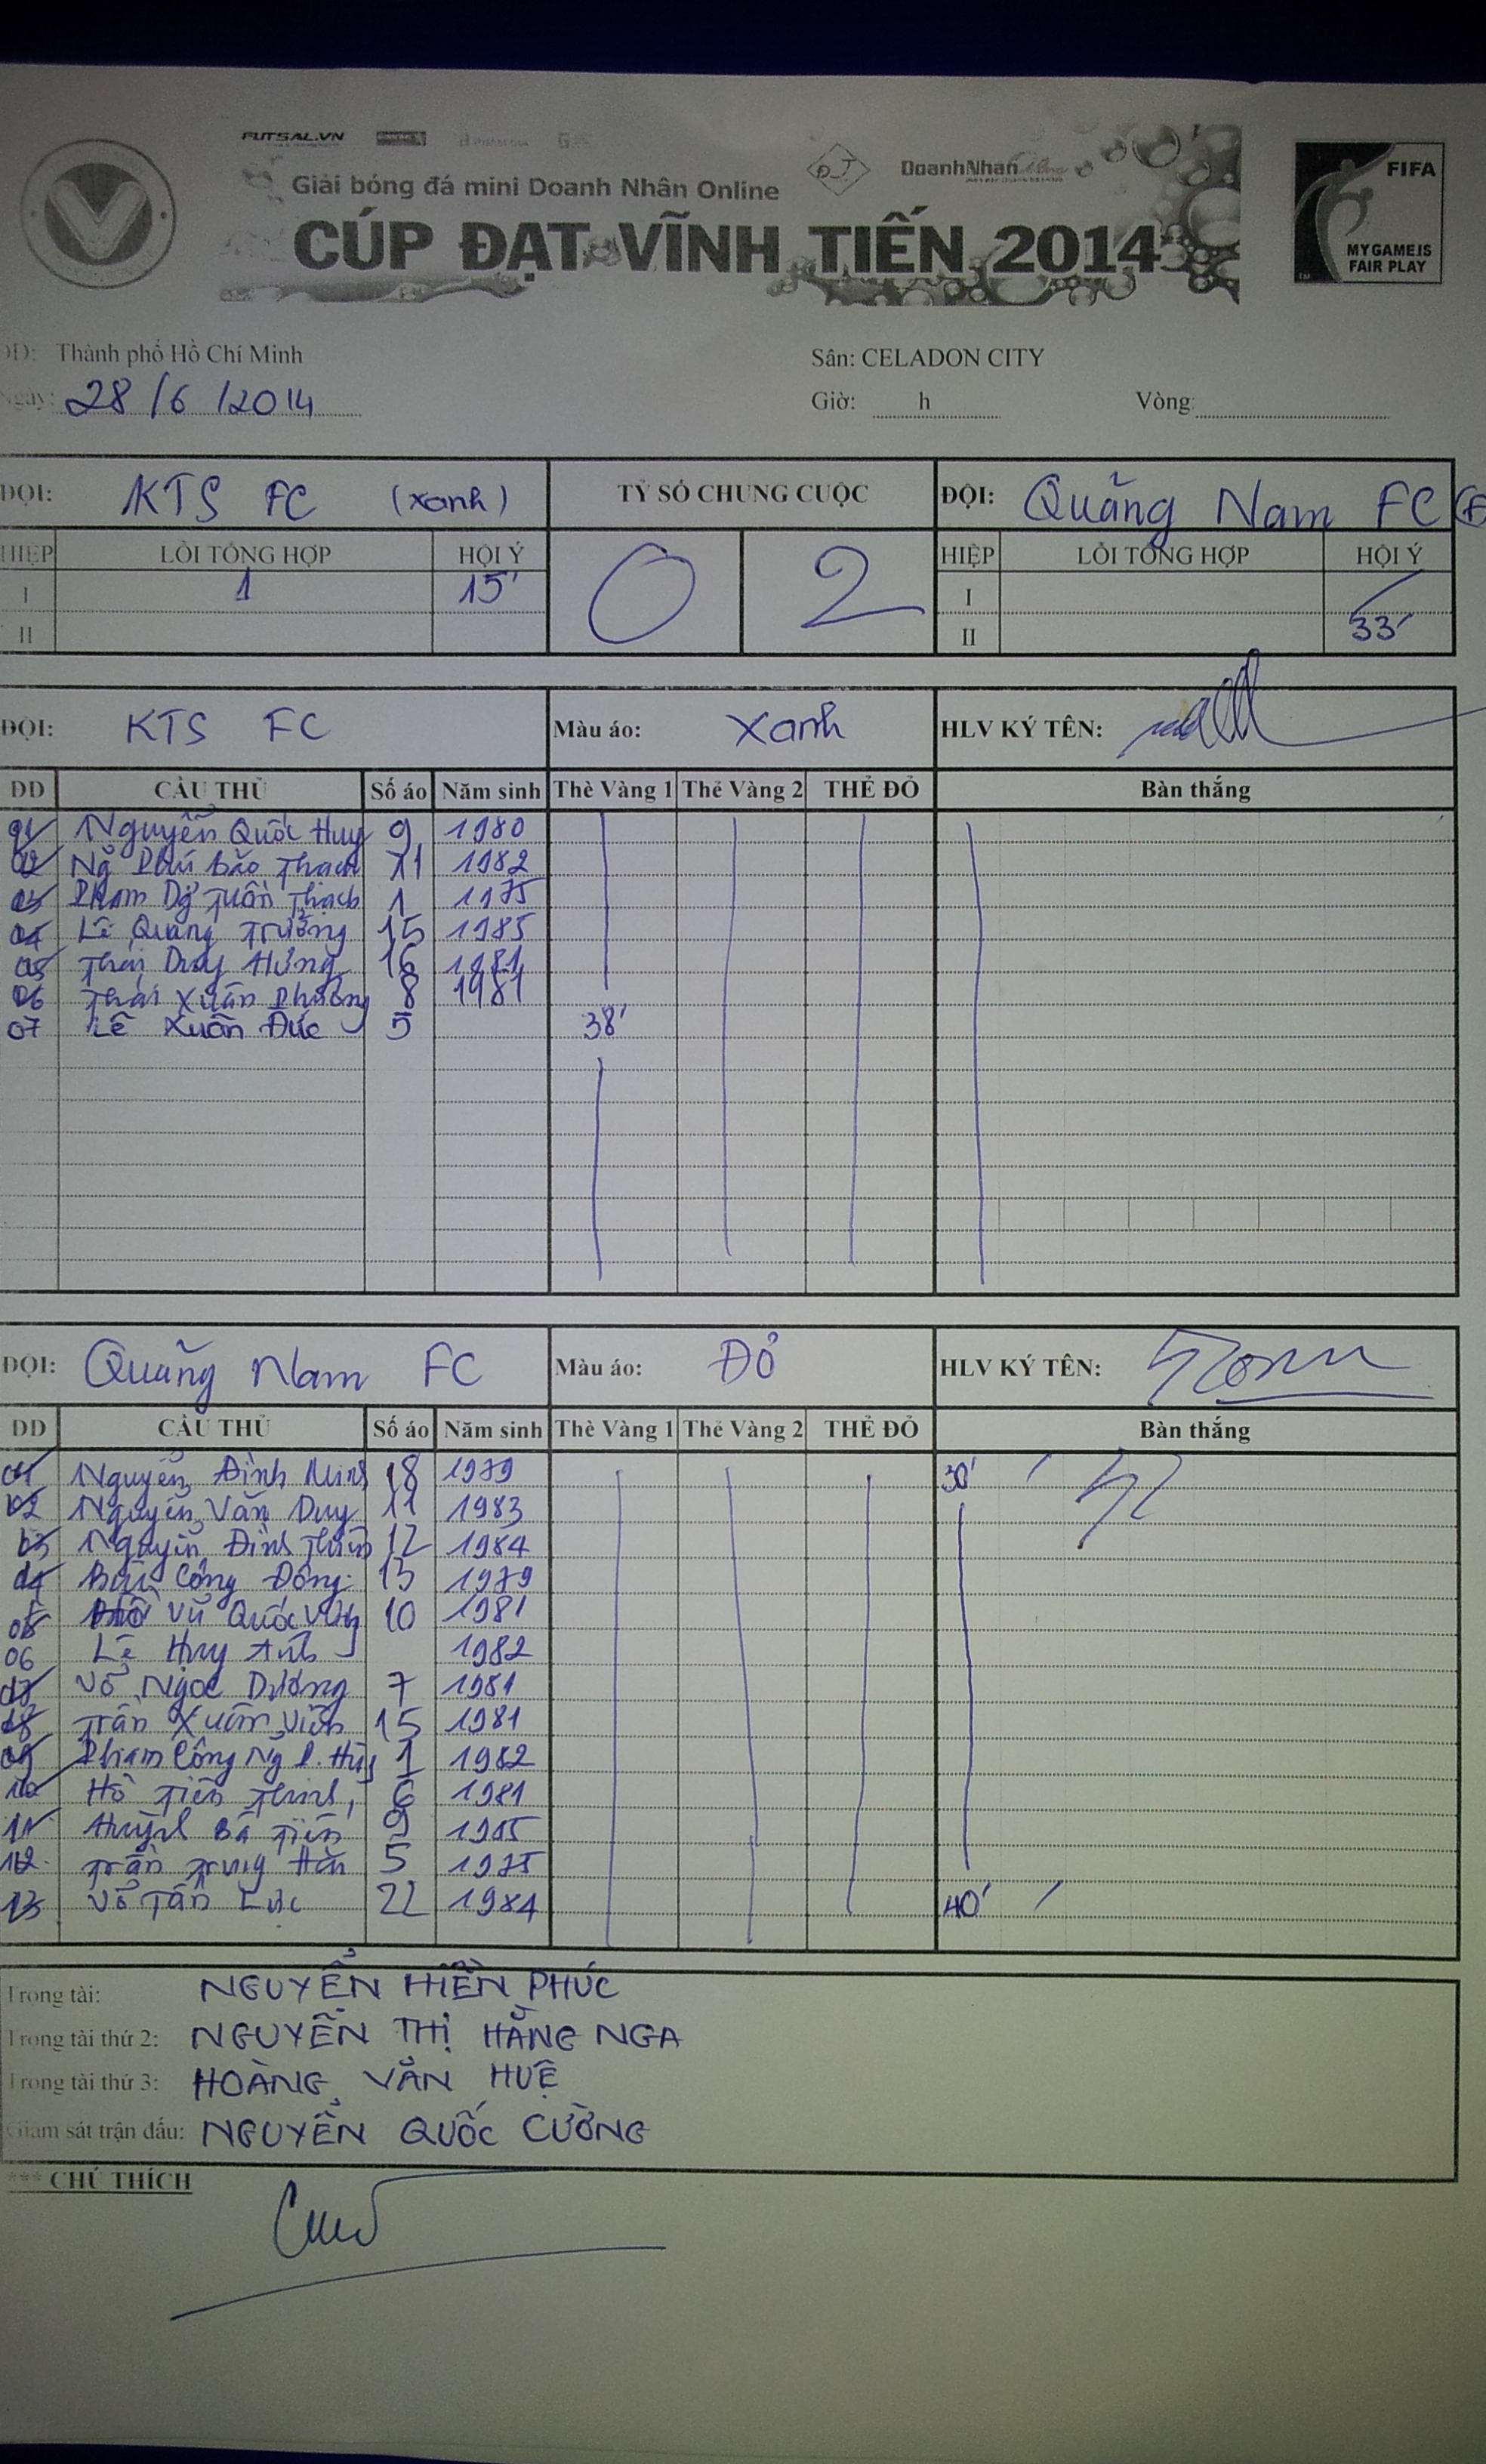 FUTSAL.VN
Giải bóng đá mini Doanh Nhân Online
ĐJ
DoanhNhan
CÚP ĐẠT VĨNH TIẾN 2014
FIFA
MY GAME IS
FAIR PLAY
Thành phố Hồ Chí Minh Sân: CELADON CITY
Ngày: 28/6/2014 Giờ: h Vòng:
ĐỘI: KTS FC (xanh) TỶ SỐ CHUNG CUỘC ĐỘI: Quãng Nam FC
HIỆP LỖI TỔNG HỢP HỘI Ý 0 2 HIỆP LỖI TỔNG HỢP HỘI Ý
I 1 15' I
II II 33'
ĐỘI: KTS FC Màu áo: Xanh HLV KÝ TÊN:
DD CẦU THỦ Số áo Năm sinh Thẻ Vàng 1 Thẻ Vàng 2 THẺ ĐỎ Bàn thắng
01 Nguyễn Quốc Huy 9 1980
02 Ng Phú Bảo Thạch 11 1982
03 Phạm Tuấn Thạch 1 1975
04 Lê Quang Trường 15 1985
05 Thái Duy Hưng 16 1981
06 Thái Xuân Phương 8 1981
07 Lê Xuân Đức 5 38'
ĐỘI: Quãng Nam FC Màu áo: Đỏ HLV KÝ TÊN:
DD CẦU THỦ Số áo Năm sinh Thẻ Vàng 1 Thẻ Vàng 2 THẺ ĐỎ Bàn thắng
01 Nguyễn Đình Minh 18 1979 30'
02 Nguyễn Văn Duy 11 1983
03 Nguyễn Đình Thiên 12 1984
04 Công Đông 13 1979
05 Vũ Quốc 10 1981
06 Lê Huy Anh 1982
07 Võ Ngọc Dương 7 1981
08 Trần Xuân Viên 15 1981
09 Phạm Công Ng P. Huy 1 1982
10 Hồ Tiến Thịnh 6 1981
11 Huỳnh Bá Tiến 9
12 Trần Trung Hân 5 1975
13 Võ Tấn Lực 22 1984 40'
Trọng tài: NGUYỄN HIỀN PHÚC
Trọng tài thứ 2: NGUYỄN THỊ HẰNG NGA
Trọng tài thứ 3: HOÀNG VĂN HUỆ
Giám sát trận đấu: NGUYỄN QUỐC CƯỜNG
*** CHÚ THÍCH